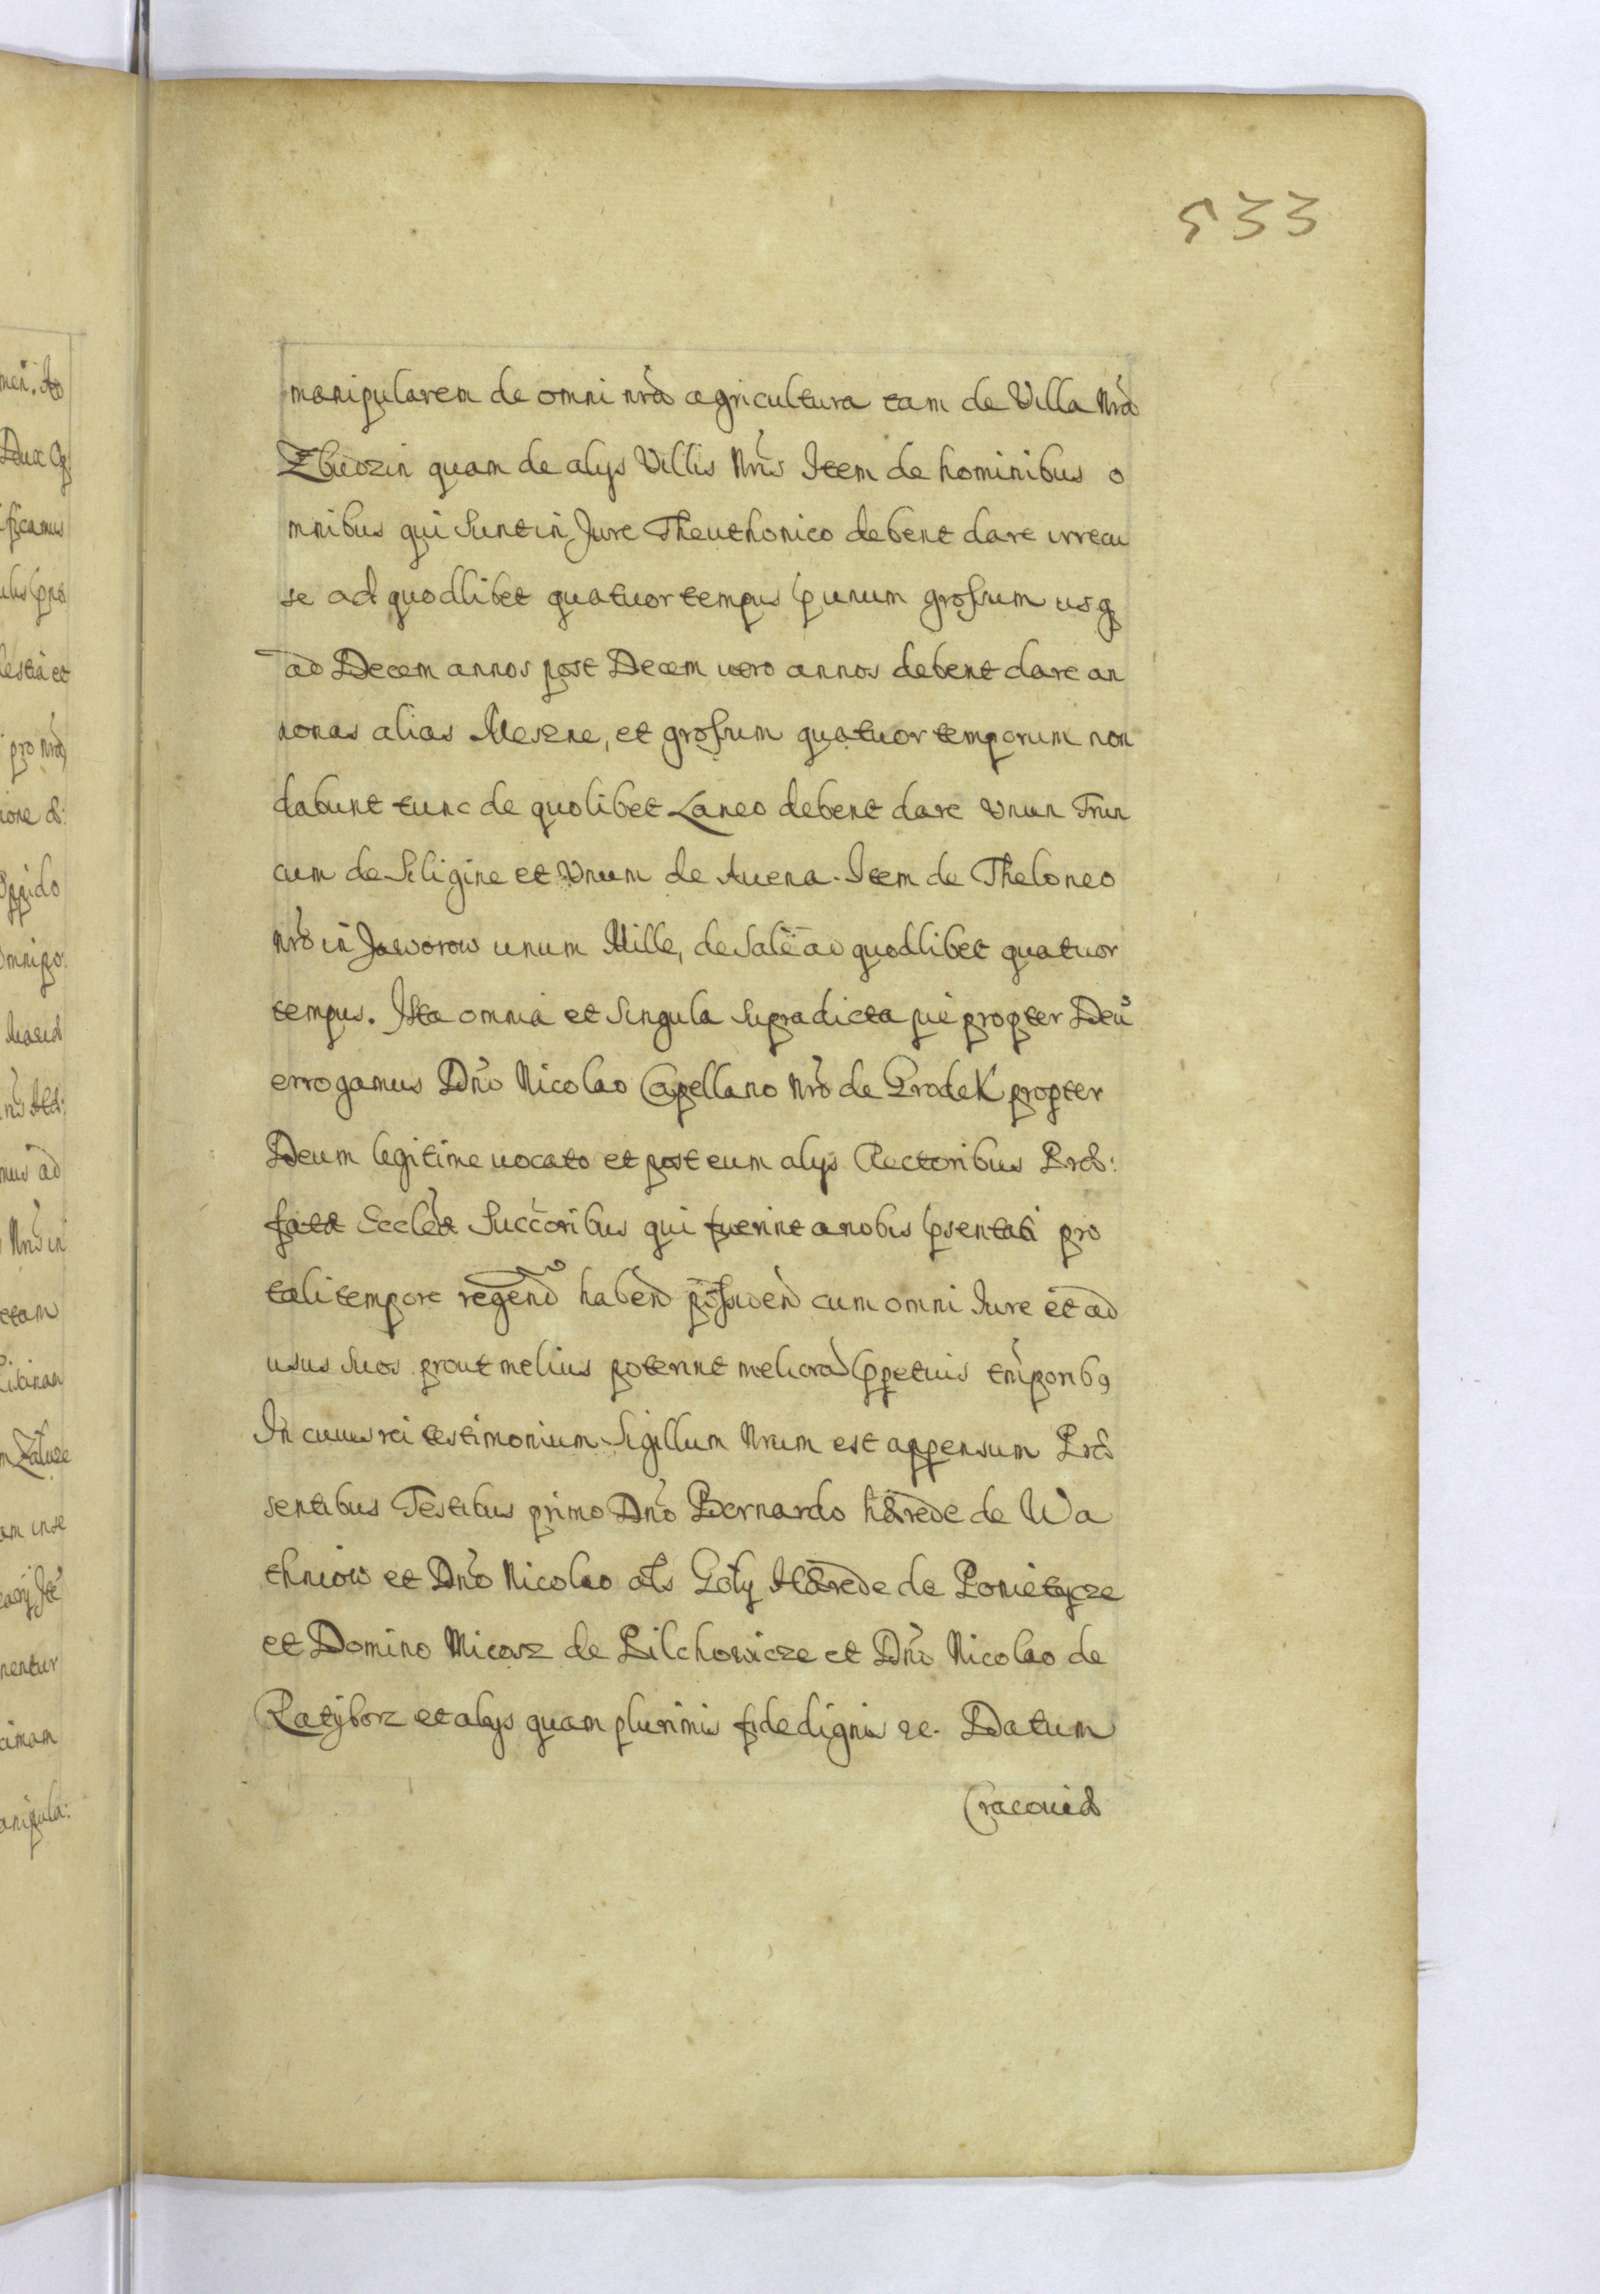 533
manipularem de omni nrã agricultura tam de Villa Nrã
Zbuozin quam de alys Villis Nris Item de hominibus o
mnibus qui Sunt in Jure Theuthonico debent dare irrecu
se ad quodlibet quatuor tempus p unum grossum usq
ad Decem annos post Decem uero annos debent dare an
nonas alias Meszne, et grossum quatuor temporum non
dabunt tunc de quolibet Laneo debent dare Unun Trun
cum de Siligine et Unum de Auena. Item de Theloneo
nrõ in Jaworow unum Mille, de Sale ad quodlibet quatuor
tempus. Ista omnia et Singula Supradicta pie propter Deũ
errogamus Dnõ Nicolao Capellano Nrõ de Grodek propter
Deum legitime uocato et post eum alys Rectoribus Præ:
fatæ Ecclæ Succoribus qui fuerint a nobis psentati pro
tali tempore regend habend possidend cum omni Jure et ad
usus Suos prout melius poterint meliorad ppetuis tmporibq
In cuius rei testimonium Sigillum Nrum est appensum Præ
sentibus Testibus primo Dnõ Bernardo hærede de Wa
thniow et Dnõ Nicolao als Goły Hærede de Ponietycze
et Domino Micosz de Bilchowicze et Dnõ Nicolao de
Ratyborz et alys quam plurimis fide dignis &c. Datum
Cracouiæ